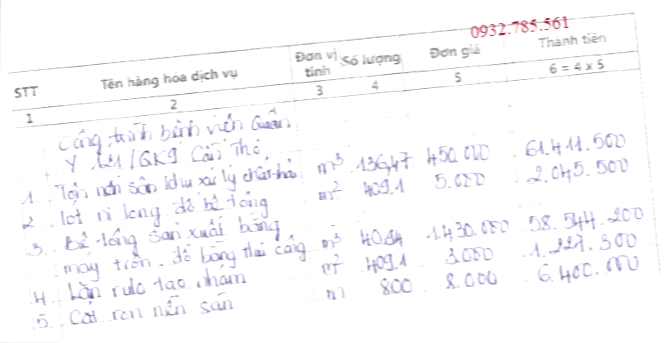 0932.785.561
STT Tên hàng hóa dịch vụ Đơn vị tính Số lượng Đơn giá Thành tiền
1 2 3 4 5 6 = 4 x 5
Công trình bệnh viện Quân
Y 121/QK9 Cần Thơ
1 Tôn nền sân khu xử lý chất thải m³ 136,47 450.000 61.411.500
2. lót ni long đổ bê tông m² 409.1 5.000 2.045.500
3. Bê tông sản xuất bằng
máy trộn. đổ bằng thủ công m³ 40.94 1.430.000 58.544.200
4. Lăn rulo tạo nhám m² 409.1 3.000 1.227.300
5. Cắt ron nền sân m 800 8.000 6.400.000